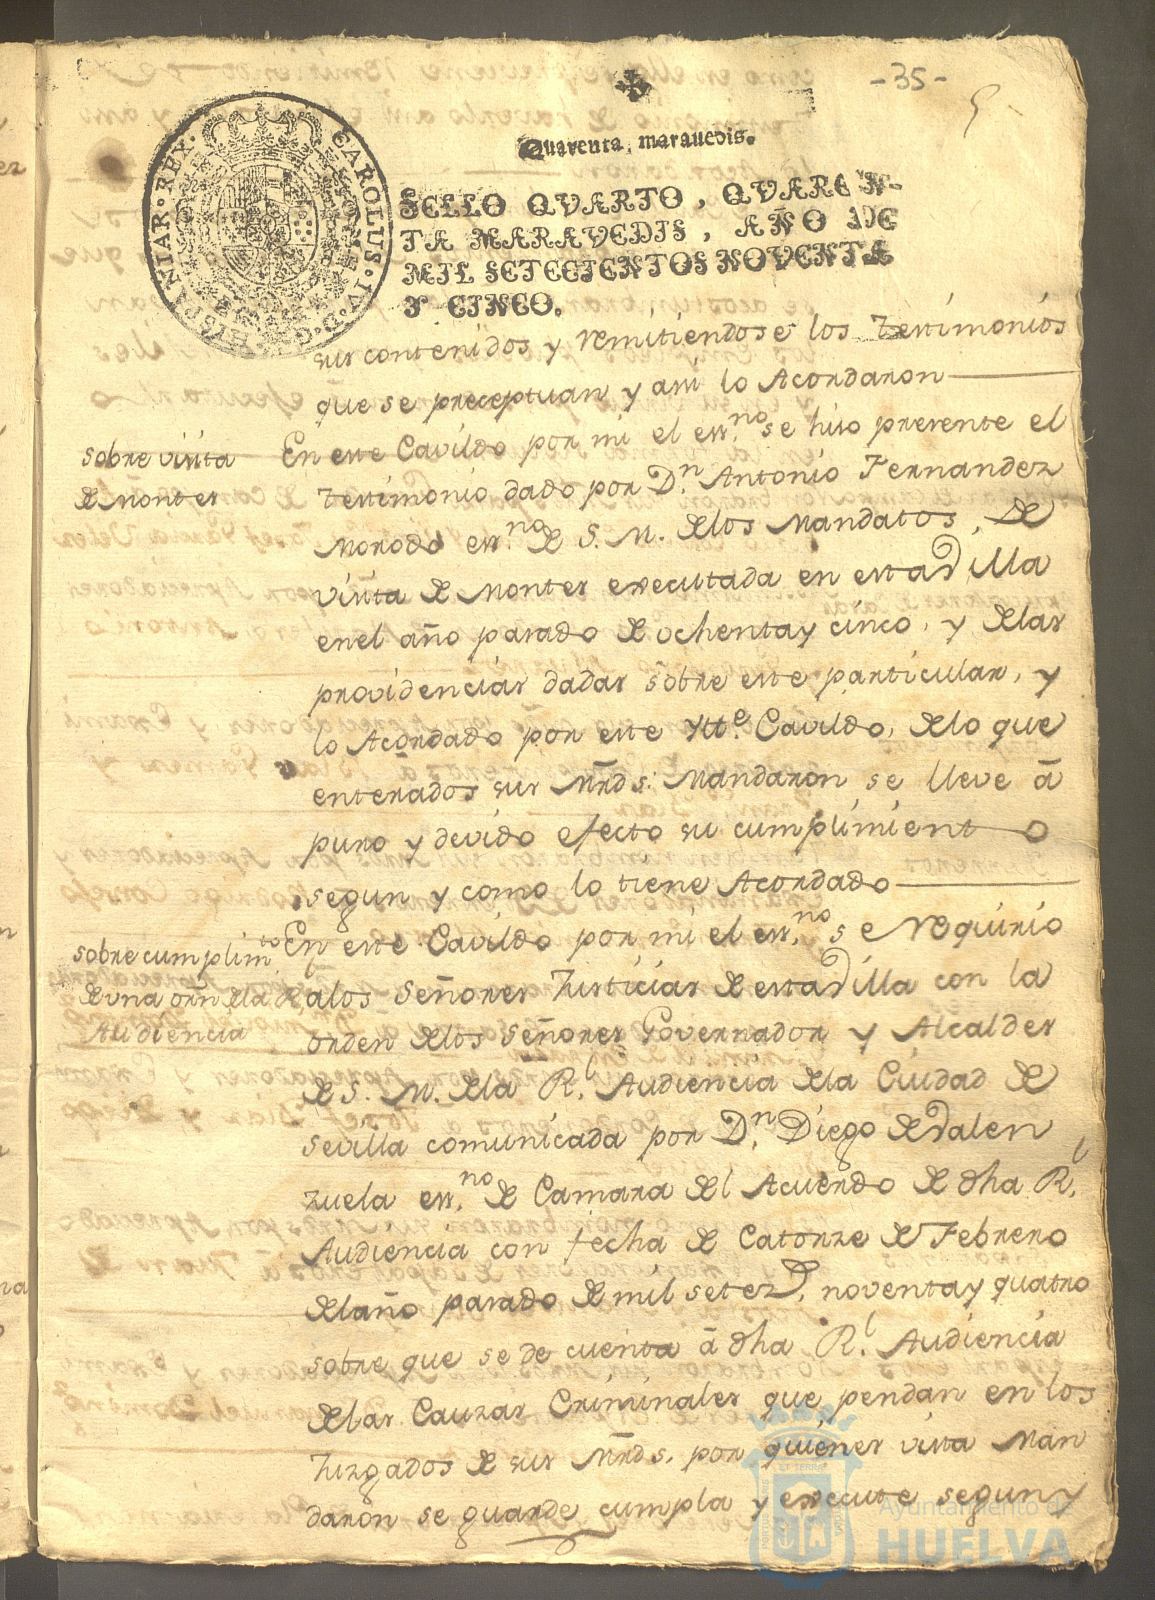 -35-
Quarenta, marauedis.
CAROLUS·IV·D·G· HISPANIAR·REX·
SELLO QVARTO, QVAREN-
TA MARAVEDIS, AÑO DE
MIL SETECIENTOS NOVENTA
Y CINCO.
sus contenidos y remitiendose los testimonios
que se preceptuan y asi lo Acordaron
sobre visita
de Montes
En este Cavildo por mi el ess.no se hiso presente el
testimonio dado por D.n Antonio Fernandez
Morodo ess.no de S. M. delos Mandatos, de
visita de Montes executada en esta Villa
enel año pasado de ochentay cinco, y delas
providencias dadas sobre este particular, y
lo Acordado por este Ytt.e Cavildo, delo que
enterados sus Mrds: Mandaron se lleve â
puro y devido efecto su cumplimiento
segun y como lo tiene Acordado
sobre cumplim.to
de una orñ dela R.l
Audiencia
En este Cavildo por mi el ess.no se requirio
alos Señores Justicias de esta Villa con la
orden delos Señores Governador y Alcaldes
de S. M. dela R.l Audiencia dela Ciudad de
Sevilla comunicada por D.n Diego de Valen
zuela ess.no de Camara del Acuerdo de dha R.l
Audiencia con fecha de Catorze de Febrero
delaño pasado de mil setez.s noventay quatro
sobre que se de cuenta â dha R.l Audiencia
delas Cauzas Criminales que pendan en los
Juzgados de sus Mrds. por quienes vista Man
daron se guarde cumpla y execute segun y
Ayuntamiento de
HUELVA